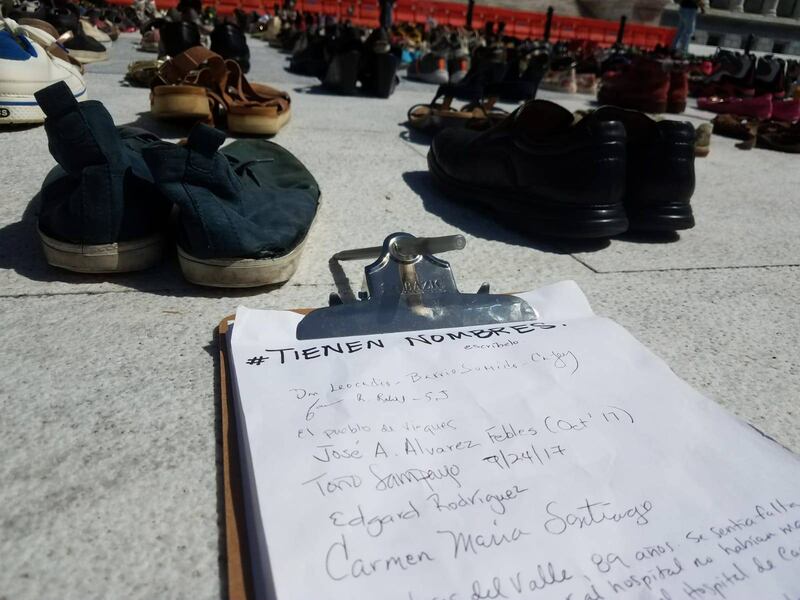 BAZIC
#TIENEN NOMBRES.
escríbelo
Don Leocadio - Barrio Sumido - Cayey
R. - S.J
El pueblo de Vieques
José A. Alvarez Febles (Oct' 17)
Toño Sampayo 9/24/17
Edgard Rodriguez
Carmen María Santiago
del Valle, 89 años. Se sentía falta
al hospital no habían
Hospital de